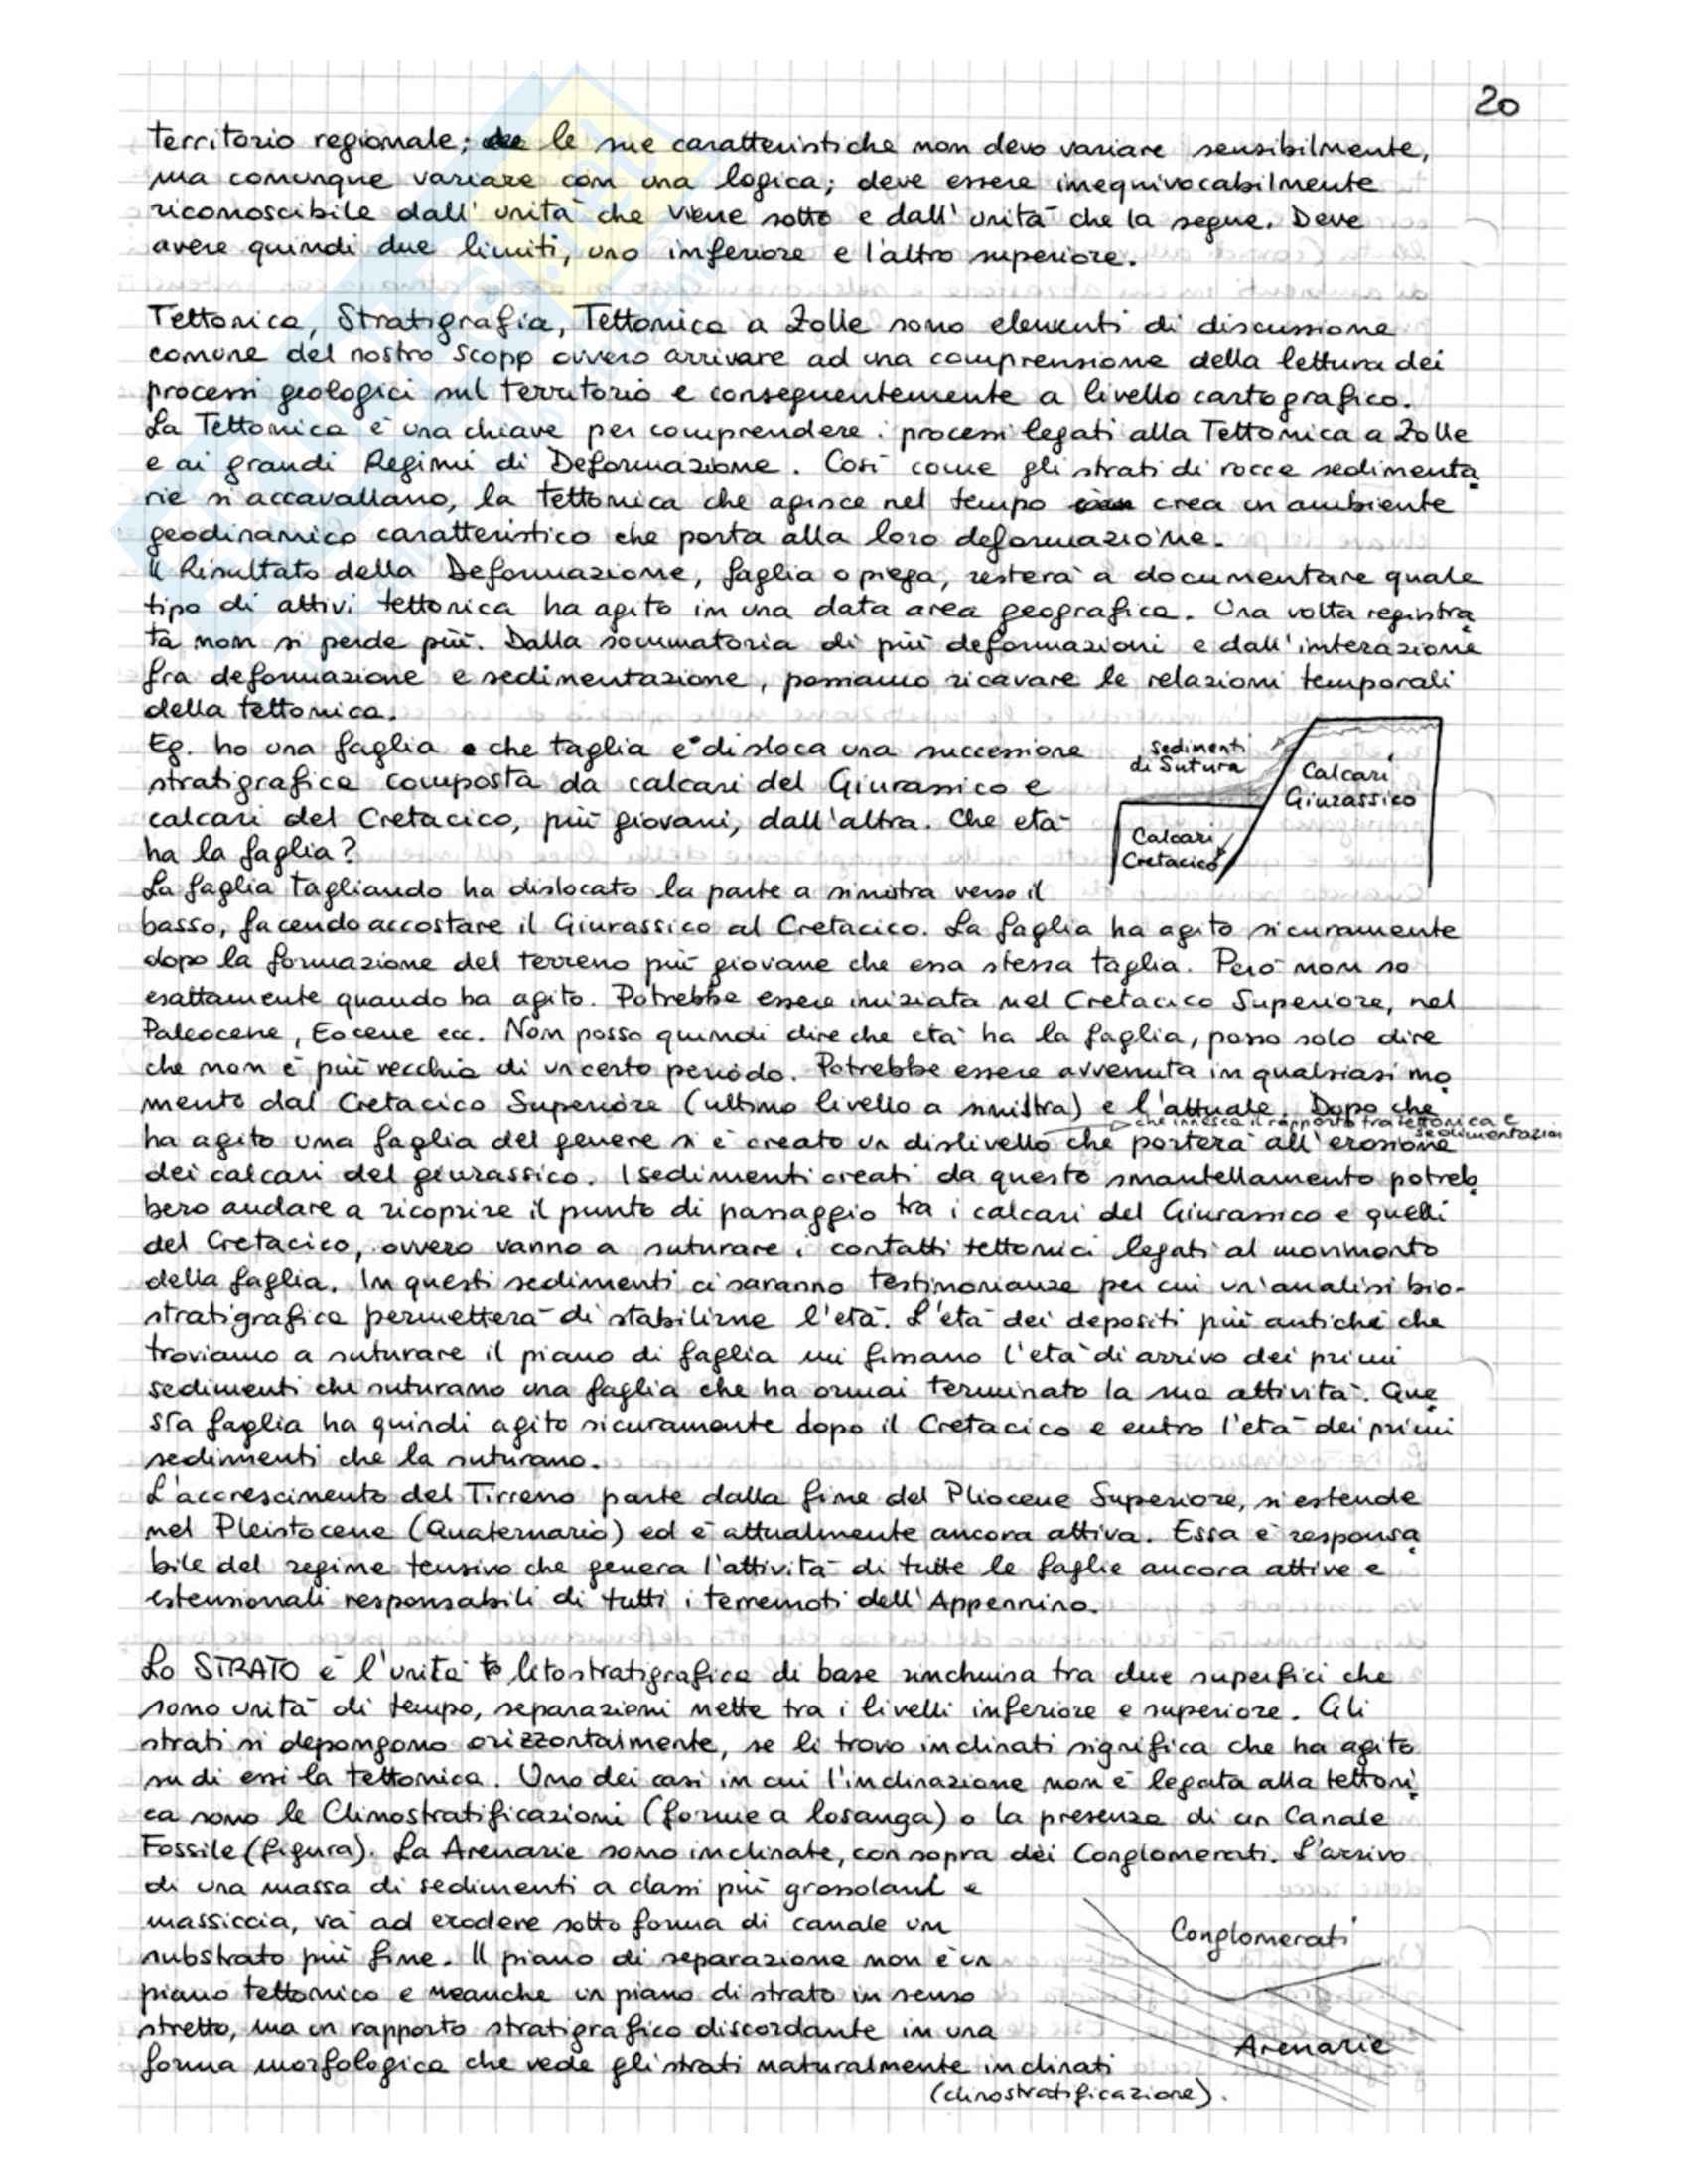 20
territorio regionale; le sue caratteristiche non devo variare sensibilmente,
ma comunque variare con una logica; deve essere inequivocabilmente
riconoscibile dall'unità che viene sotto e dall'unità che la segue. Deve
avere quindi due limiti, uno inferiore e l'altro superiore.
Tettonica, Stratigrafia, Tettonica a Zolle sono elementi di discussione
comune del nostro scopo ovvero arrivare ad una comprensione della lettura dei
processi geologici sul territorio e conseguentemente a livello cartografico.
La Tettonica è una chiave per comprendere i processi legati alla Tettonica a Zolle
e ai grandi Regimi di Deformazione. Così come gli strati di rocce sedimenta
rie si accavallano, la tettonica che agisce nel tempo crea un ambiente
geodinamico caratteristico che porta alla loro deformazione.
Il Risultato della Deformazione, faglia o piega, resterà a documentare quale
tipo di attivi tettonica ha agito in una data area geografica. Una volta registra
ta non si perde più. Dalla sommatoria di più deformazioni e dall'interazione
fra deformazione e sedimentazione, possiamo ricavare le relazioni temporali
della tettonica.
Eg. ho una faglia che taglia e disloca una successione
stratigrafica composta da calcari del Giurassico e
calcari del Cretacico, più giovani, dall'altra. Che età
ha la faglia?
Sedimenti
di Sutura
Calcari
Giurassico
Calcari
Cretacico
La faglia tagliando ha dislocato la parte a sinistra verso il
basso, facendo accostare il Giurassico al Cretacico. La faglia ha agito sicuramente
dopo la formazione del terreno più giovane che essa stessa taglia. Però non so
esattamente quando ha agito. Potrebbe essere iniziata nel Cretacico Superiore, nel
Paleocene, Eocene ecc. Non posso quindi dire che età ha la faglia, posso solo dire
che non è più vecchia di un certo periodo. Potrebbe essere avvenuta in qualsiasi mo
mento dal Cretacico Superiore (ultimo livello a sinistra) e l'attuale. Dopo che
che innesca il rapporto tra tettonica e
sedimentazion
ha agito una faglia del genere si è creato un dislivello che porterà all'erosione
dei calcari del giurassico. I sedimenti creati da questo smantellamento potreb
bero andare a ricoprire il punto di passaggio tra i calcari del Giurassico e quelli
del Cretacico, ovvero vanno a suturare i contatti tettonici legati al movimento
della faglia. In questi sedimenti ci saranno testimonianze per cui un'analisi bio-
stratigrafica permetterà di stabilirne l'età. L'età dei depositi più antichi che
troviamo a suturare il piano di faglia mi fissano l'età di arrivo dei primi
sedimenti che suturano una faglia che ha ormai terminato la sua attività. Que
sta faglia ha quindi agito sicuramente dopo il Cretacico e entro l'età dei primi
sedimenti che la suturano.
L'accrescimento del Tirreno parte dalla fine del Pliocene Superiore, si estende
nel Pleistocene (Quaternario) ed è attualmente ancora attiva. Essa è responsa
bile del regime tensivo che genera l'attività di tutte le faglie ancora attive e
estensionali responsabili di tutti i terremoti dell'Appennino.
Lo STRATO è l'unità litostratigrafica di base rinchiusa tra due superfici che
sono unità di tempo, separazioni nette tra i livelli inferiore e superiore. Gli
strati si depongono orizzontalmente, se li trovo inclinati significa che ha agito
su di essi la tettonica. Uno dei casi in cui l'inclinazione non è legata alla tettoni
ca sono le Clinostratificazioni (forme a losanga) o la presenza di un Canale
Fossile (figura). La Arenarie sono inclinate, con sopra dei Conglomerati. L'arrivo
di una massa di sedimenti a classi più grossolani e
massiccia, va ad erodere sotto forma di canale un
substrato più fine. Il piano di separazione non è un
piano tettonico e neanche un piano di strato in senso
stretto, ma un rapporto stratigrafico discordante in una
forma morfologica che vede gli strati naturalmente inclinati
(clinostratificazione).
Conglomerati
Arenarie